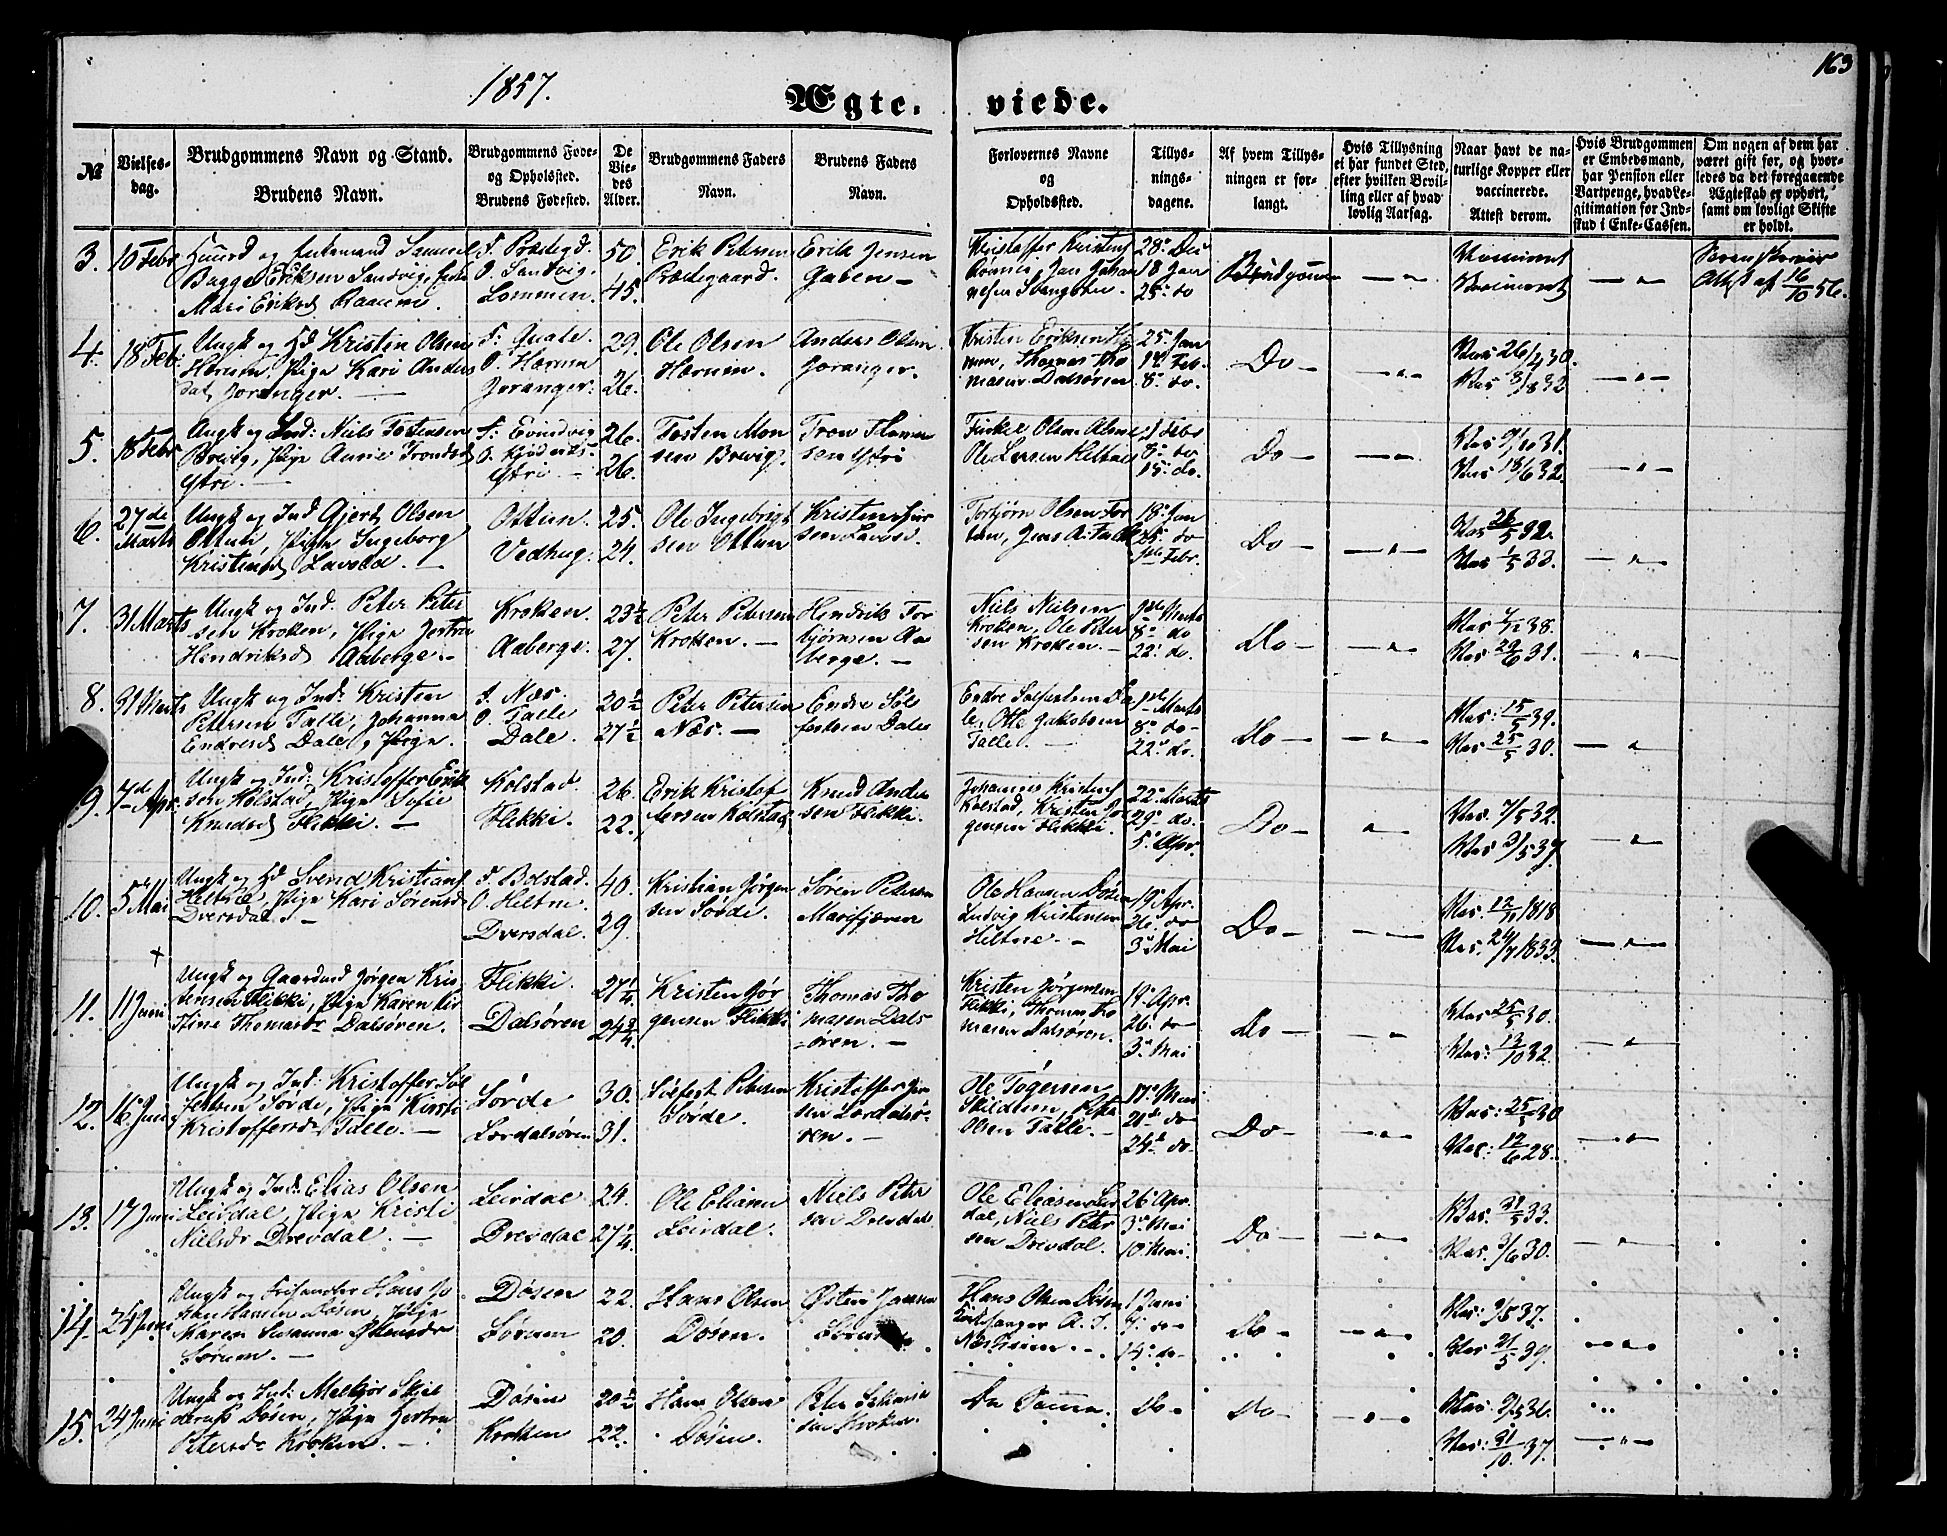 163
1857.
Ægte- viede.
№
Vielses-
dag.
Brudgommens Navn og Stand.
Brudens Navn.
Brudgommens Føde-
og Opholdssted.
Brudens Fødested.
De
Vie-
des
Alder.
Brudgommens Faders
Navn.
Brudens Faders
Navn.
Forlovernes Navne
og
Opholdssted.
Tillys-
nings-
dagene.
Af hvem Tillys-
ningen er for-
langt.
Hvis Tillysning
ei har fundet Sted,
efter hvilken Bevil-
ling eller af hvad
lovlig Aarsag.
Naar havt de na-
turlige Kopper eller
vaccinerede.
Attest derom.
Hvis Brudgommen
er Embedsmand,
har Pension eller
Vartpenge, hvad Le-
gitimation for Ind-
stud i Enke-Cassen.
Om nogen af dem har
været gift før, og hvor-
ledes da det foregaaende
Ægteskab er ophørt,
samt om lovligt Skifte
er holdt.
3. 10 Febr
Bagge Eriksen Sandvig,
Mari Eriksd
O. Sandvig.
Lommen.
50.
45.
Erik Petersen
Prædegaard.
Erik Jensen
Gaben –
28. De
18 Jan
25. do
Brudgommen
Attest af 16/10 56.
4. 18 Feb.
Ungk og Hd Kristen Olsen
Hærum, Pige Kari Anders
dat Joranger. —
F. Quale.
O. Hærum
Joranger.
29.
26.
Ole Olsen
Hærum.
Anders Olsen
Joranger.
Kristen Eriksen
Thomas Tho
masen Dalsøren
25. Jan
1 Feb.
8. do
Do –
Vac 26/4 30.
Vac 3/8 32
5. 18 Febr
Ungk og Ind: Niels Torstensen
Brevig, Pige Anne Trondsd
Ytri. —
Ytri. –
26.
26.
Tosten Mon
sen Brevig.
Tron Thom
sen Ytri
Ole Larsen Heltne
1 Febr
8. do
15. do.
Do –
Vac 9/10 31.
Vac 18/6 32.
6. 27de Marts
Ungk og Ind Gjert Olsen
Ottum, Pige Ingeborg
Kristensd
Ottum.
Vedhug.
25.
24.
Ole Ingebrigt
sen Ottum
Kristen
Torbjørn Olsen
18. Jan
25. do
1ste Febr.
Do –
Vac 26/5 32.
Vac 1/5 33.
7. 31 Marts
Ungk og Ind. Peter Peter
sen Kroken, Pige Jertru
Hendriksd Aaberge. –
Kroken.
Aaberge.
23½
27.
Peter Petersen
Kroken. –
Hendrik Tor
bjørnsen Aa
berge. –
Niels Nielsen
Kroken, Ole Peter
sen Kroken. –
1ste Marts
8. do
22. do.
Do –
Vac 38.
Vac 29/6 31.
8. 31 Marts
Ungk og Ind: Kristen
Petersen Talle, Johanna
Endresd Dale, Pige.
F. Næs.
O. Talle
Dale.
20½
27½
Peter Petersen
Næs. –
Endre Søl
festsen Dale
Endre Solfestsen Da
le, Otte Jakobsen
Talle. –
1ste Marts
8. do –
22. do.
Do –
Vac: 15/5 39.
Vac. 25/5 30.
9. 7de Apr.
Ungk og Ind: Kristoffer Erik
sen Kolstad, Pige Sofie
Knudsd Flikki. –
Kolstad.
Flikki.
26.
22.
Erik Kristof
fersen Kolstad
Knud Ander
sen Flikki.
Johannes Kristens
Kolstad, Kristen Jør
gensen Flikki.
22. Marts
29. do.
5. Apr.
Do –
Vac. 7/5 32.
Vac 2/5 37.
10. 5 Mai
Ungk og Hd Svend Kristians
Heltne, Pige Kari Sørensd
Dversdal. –
F. Bolstad.
O. Heltne.
Dversdal.
40.
29.
Kristian Jørgen
sen Sørde.
Søren Petersen
Marifjæren
Ole Hansen Døsen
Ludvig Kristensen
Heltne. –
19. Apr.
26. do
3. Mai
Do –
Vac. 12/11 1818
Vac. 24/7 1833.
11. 11 Juni
Ungk og Gaardmd Jørgen Kris
tensen Flikki, Pige Karen Kir
stine Thomasdr Dalsøren.
Flikki.
Dalsøren
27¼
24¾
Kristen Jør
gensen Flikki
Thomas Tho
masen Dals
øren. –
Kristen Jørgensen
Flikki, Thomas Tho
masen Dalsøren.
19. Apr.
26. do
3. Mai
Do –
Vac 25/5 30.
Vac: 13/10 32.
12. 16 Juni
Ungk og Ind: Kristoffer Søl
festsen Sørde, Pige Kirsti
Kristoffersdr Talle. –
Sørde
Lordalsøren
30.
31.
Sølfest Petersen
Sørde.
Kristoffer
sen Lordalsø
ren. –
Ole Tøgersen
Skildum, Peter
Olsen Talle. –
17. Mai
21. do
24. do
Do –
Vac: 25/5 30
Vac: 12/6 28.
13. 17 Juni
Ungk og Ind: Elias Olsen
Leirdal, Pige Kristi
Nielsdr Drevdal. –
Leirdal
Drevdal
24.
27¼
Ole Eliasen
Leirdal.
Niels Peter
sen Drevdal
Ole Eliasen Leir
dal, Niels Peter
sen Drevdal.
26. Apr.
3. Mai
10. Mai
Do –
Vac. 31/5 33.
Vac. 3/6 30.
14. 24 Juni
Ungk og Hans Jo
han Hansen Døsen, Pige
Karen Susanna
Sørum. –
Døsen
Sørum
22.
20.
Hans Olsen
Døsen.
Østen Jansen
Hans Olsen Døsen
Kirkesanger A. J.
1 Juni
7. do –
14. do –
Do –
Vac: 9/8 37.
Vac 21/5 39.
15. 24 Juni
Ungk og Ind: Melkjør Skjel
derup Døsen, Pige Jertru
Petersdr Kroken. –
Døsen
Kroken
20½
22.
Hans Olsen
Døsen.
Peter
sen Kroken.
De Samme.
Do –
Do –
Vac. 9/5 36.
Vac: 31/10. 37.